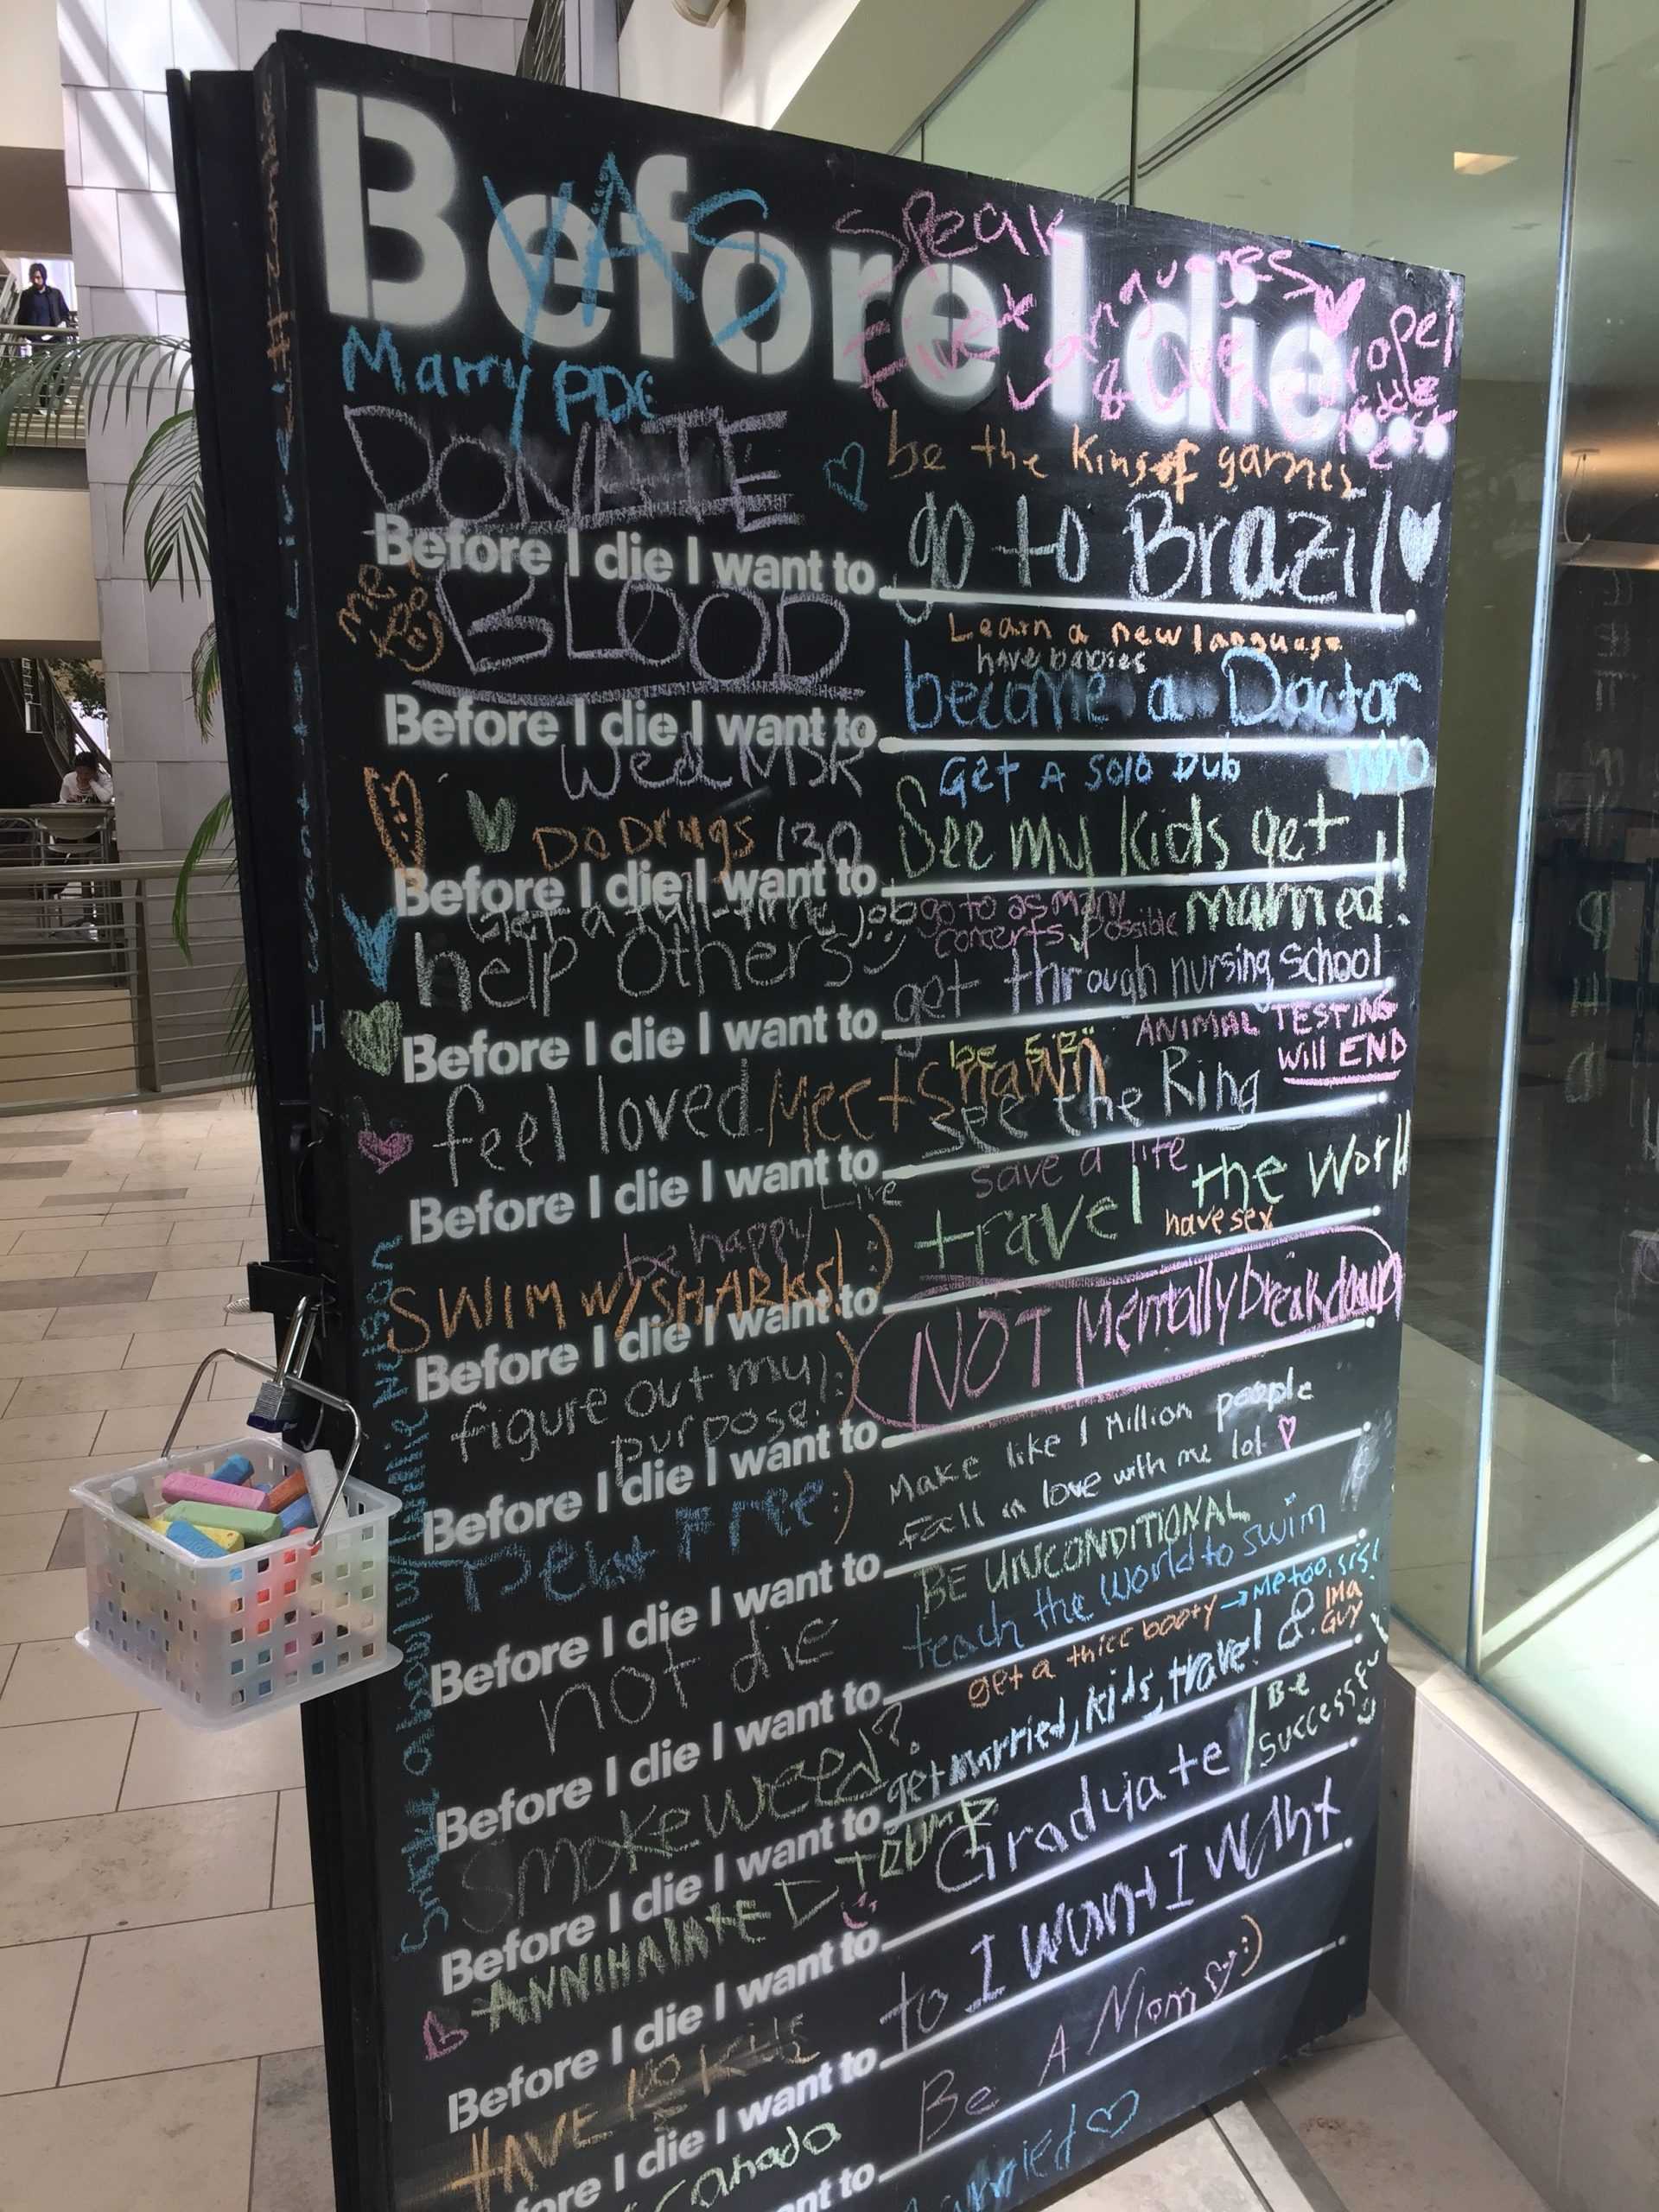 Before I die...
YAS
Speak
Five Languages
&
Marry PDC
DONATE
be the King of games
Before I die I want to go to Brazil
me too
BLOOD
Learn a new language
have babies
Before I die I want to become a Doctor
Who
Wed MSR
Get A Solo Dub
Do Drugs 130
Before I die I want to See my kids get
married!
Get a full-time job
go to as many
concerts possible
help others
Before I die I want to get through nursing school
ANIMAL TESTING
Will END
be
feel loved
Meet Shawn
Before I die I want to see the Ring
save a life
Live
be happy
have sex
SWIM W/ SHARKS! :)
Before I die I want to travel the World
figure out my
purpose! :)
Before I die I want to NOT Mentally breakdown
Debt Free :)
Make like 1 Million people
Before I die I want to fall in love with me lol
BE UNCONDITIONAL
not die
Before I die I want to teach the World to swim
get a thicc booty → Me too, sis!
IMA
GUY
Smoke weed?
Before I die I want to get married, kids, travel &
Be
successful
ANNIHALATE D TRUMP
Before I die I want to Graduate
HAVE 10 KIDS
Before I die I want to to I want I Want
Canada
Before I die I want to Be A Mom :)
want to Married
Smoke a bowl w/ Willie Nelson